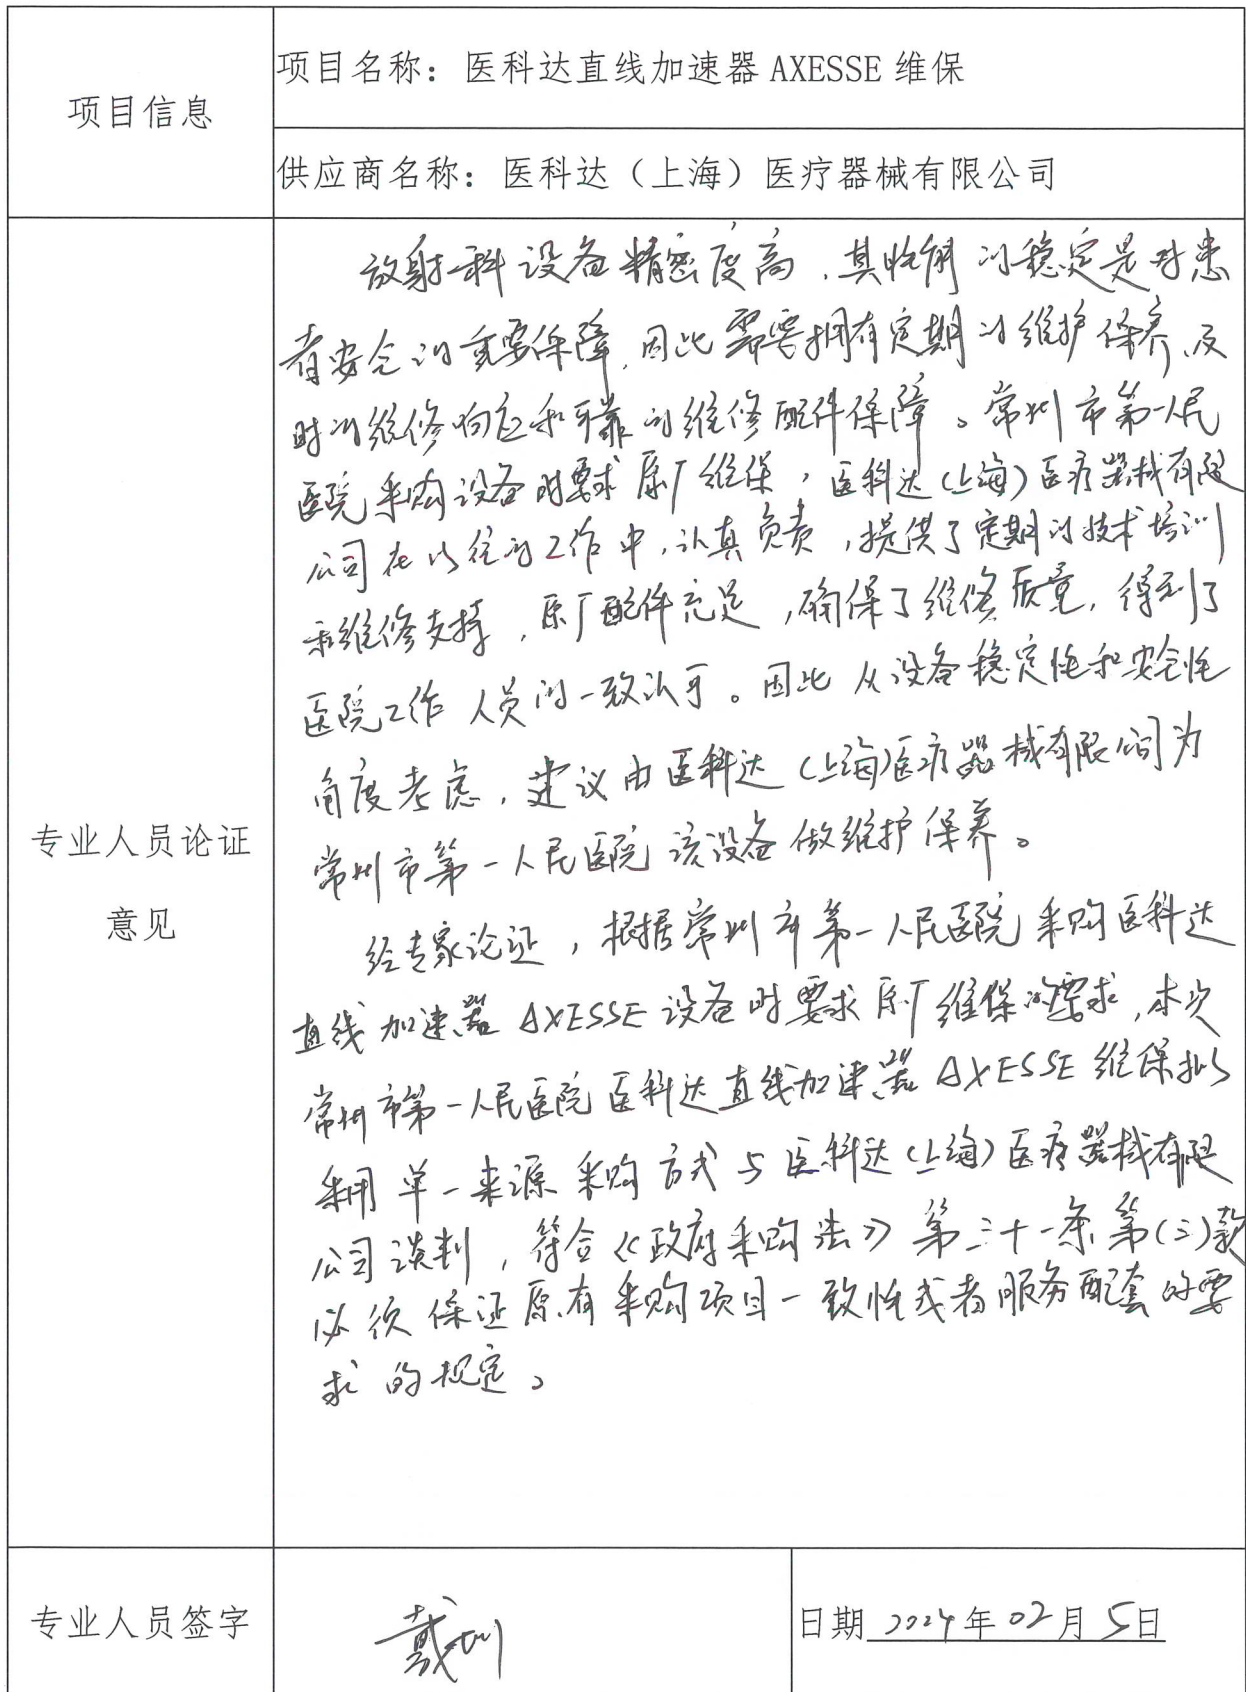 项目信息
项目名称：医科达直线加速器 AXESSE 维保
供应商名称：医科达（上海）医疗器械有限公司
专业人员论证
意见
放射科设备精密度高，其性能的稳定是对患
者安全的重要保障，因此需要拥有定期的维护保养、及
时的维修响应和可靠的维修配件保障。常州市第一人民
医院采购设备时要求原厂维保，医科达（上海）医疗器械有限
公司在以往的工作中，认真负责，提供了定期的技术培训
和维修支持，原厂配件充足，确保了维修质量，得到了
医院工作人员的一致认可。因此从设备稳定性和安全性
角度考虑，建议由医科达（上海）医疗器械有限公司为
常州市第一人民医院该设备做维护保养。
经专家论证，根据常州市第一人民医院采购医科达
直线加速器 AXESSE 设备时要求原厂维保的要求，本次
常州市第一人民医院医科达直线加速器 AXESSE 维保拟
采用单一来源采购方式与医科达（上海）医疗器械有限
公司谈判，符合《政府采购法》第三十一条第（三）款
必须保证原有采购项目一致性或者服务配套的要
求的规定。
专业人员签字
日期 2024年02月5日